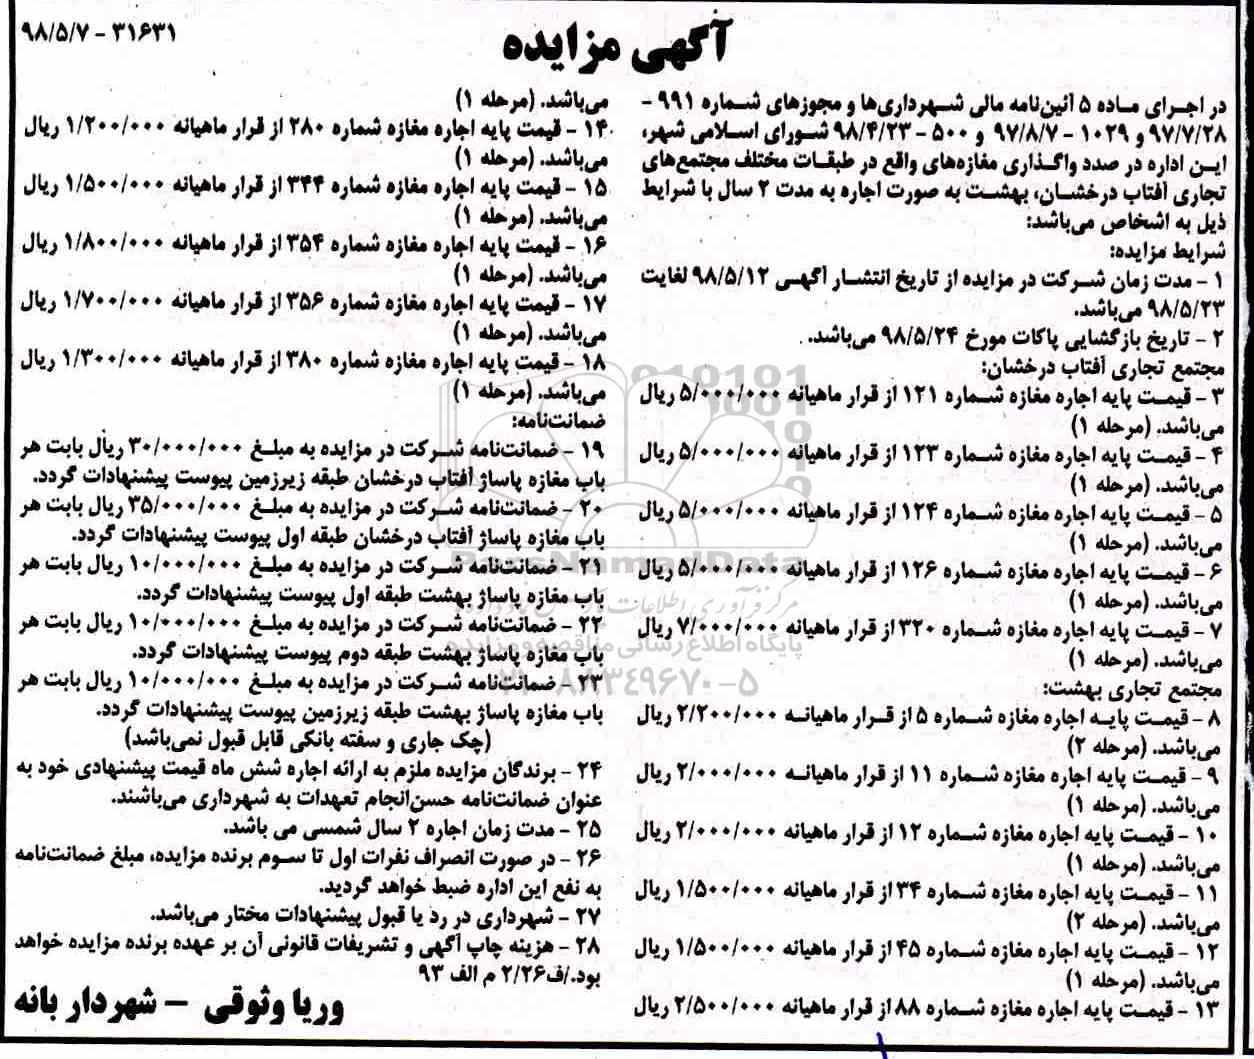 ۳۱۶۳۱ - ۹۸/۵/۷
آگهی مزایده
در اجرای ماده ۵ آئین‌نامه مالی شهرداری‌ها و مجوزهای شماره ۹۹۱ -
۹۷/۷/۲۸ و ۱۰۲۹ - ۹۷/۸/۷ و ۵۰۰ - ۹۸/۴/۲۳ شورای اسلامی شهر،
این اداره در صدد واگذاری مغازه‌های واقع در طبقات مختلف مجتمع‌های
تجاری آفتاب درخشان، بهشت به صورت اجاره به مدت ۲ سال با شرایط
ذیل به اشخاص می‌باشد:
شرایط مزایده:
۱ - مدت زمان شرکت در مزایده از تاریخ انتشار آگهی ۹۸/۵/۱۲ لغایت
۹۸/۵/۲۳ می‌باشد.
۲ - تاریخ بازگشایی پاکات مورخ ۹۸/۵/۲۴ می‌باشد.
مجتمع تجاری آفتاب درخشان:
۳ - قیمت پایه اجاره مغازه شماره ۱۲۱ از قرار ماهیانه ۵/۰۰۰/۰۰۰ ریال
می‌باشد. (مرحله ۱)
۴ - قیمت پایه اجاره مغازه شماره ۱۲۳ از قرار ماهیانه ۵/۰۰۰/۰۰۰ ریال
می‌باشد. (مرحله ۱)
۵ - قیمت پایه اجاره مغازه شماره ۱۲۴ از قرار ماهیانه ۵/۰۰۰/۰۰۰ ریال
می‌باشد. (مرحله ۱)
۶ - قیمت پایه اجاره مغازه شماره ۱۲۶ از قرار ماهیانه ۵/۰۰۰/۰۰۰ ریال
می‌باشد. (مرحله ۱)
۷ - قیمت پایه اجاره مغازه شماره ۳۲۰ از قرار ماهیانه ۷/۰۰۰/۰۰۰ ریال
می‌باشد. (مرحله ۱)
مجتمع تجاری بهشت:
۸ - قیمت پایه اجاره مغازه شماره ۵ از قرار ماهیانه ۲/۲۰۰/۰۰۰ ریال
می‌باشد. (مرحله ۲)
۹ - قیمت پایه اجاره مغازه شماره ۱۱ از قرار ماهیانه ۲/۰۰۰/۰۰۰ ریال
می‌باشد. (مرحله ۱)
۱۰ - قیمت پایه اجاره مغازه شماره ۱۲ از قرار ماهیانه ۲/۰۰۰/۰۰۰ ریال
می‌باشد. (مرحله ۱)
۱۱ - قیمت پایه اجاره مغازه شماره ۳۴ از قرار ماهیانه ۱/۵۰۰/۰۰۰ ریال
می‌باشد. (مرحله ۲)
۱۲ - قیمت پایه اجاره مغازه شماره ۴۵ از قرار ماهیانه ۱/۵۰۰/۰۰۰ ریال
می‌باشد. (مرحله ۱)
۱۳ - قیمت پایه اجاره مغازه شماره ۸۸ از قرار ماهیانه ۲/۵۰۰/۰۰۰ ریال
می‌باشد. (مرحله ۱)
۱۴ - قیمت پایه اجاره مغازه شماره ۲۸۰ از قرار ماهیانه ۱/۲۰۰/۰۰۰ ریال
می‌باشد. (مرحله ۱)
۱۵ - قیمت پایه اجاره مغازه شماره ۳۴۴ از قرار ماهیانه ۱/۵۰۰/۰۰۰ ریال
می‌باشد. (مرحله ۱)
۱۶ - قیمت پایه اجاره مغازه شماره ۳۵۴ از قرار ماهیانه ۱/۸۰۰/۰۰۰ ریال
می‌باشد. (مرحله ۱)
۱۷ - قیمت پایه اجاره مغازه شماره ۳۵۶ از قرار ماهیانه ۱/۷۰۰/۰۰۰ ریال
می‌باشد. (مرحله ۱)
۱۸ - قیمت پایه اجاره مغازه شماره ۳۸۰ از قرار ماهیانه ۱/۳۰۰/۰۰۰ ریال
می‌باشد. (مرحله ۱)
ضمانت‌نامه:
۱۹ - ضمانت‌نامه شرکت در مزایده به مبلغ ۳۰/۰۰۰/۰۰۰ ریال بابت هر
باب مغازه پاساژ آفتاب درخشان طبقه زیرزمین پیوست پیشنهادات گردد.
۲۰ - ضمانت‌نامه شرکت در مزایده به مبلغ ۳۵/۰۰۰/۰۰۰ ریال بابت هر
باب مغازه پاساژ آفتاب درخشان طبقه اول پیوست پیشنهادات گردد.
۲۱ - ضمانت‌نامه شرکت در مزایده به مبلغ ۱۰/۰۰۰/۰۰۰ ریال بابت هر
باب مغازه پاساژ بهشت طبقه اول پیوست پیشنهادات گردد.
۲۲ - ضمانت‌نامه شرکت در مزایده به مبلغ ۱۰/۰۰۰/۰۰۰ ریال بابت هر
باب مغازه پاساژ بهشت طبقه دوم پیوست پیشنهادات گردد.
۲۳ - ضمانت‌نامه شرکت در مزایده به مبلغ ۱۰/۰۰۰/۰۰۰ ریال بابت هر
باب مغازه پاساژ بهشت طبقه زیرزمین پیوست پیشنهادات گردد.
(چک جاری و سفته بانکی قابل قبول نمی‌باشد)
۲۴ - برندگان مزایده ملزم به ارائه اجاره شش ماه قیمت پیشنهادی خود به
عنوان ضمانت‌نامه حسن‌انجام تعهدات به شهرداری می‌باشند.
۲۵ - مدت زمان اجاره ۲ سال شمسی می باشد.
۲۶ - در صورت انصراف نفرات اول تا سوم برنده مزایده، مبلغ ضمانت‌نامه
به نفع این اداره ضبط خواهد گردید.
۲۷ - شهرداری در رد یا قبول پیشنهادات مختار می‌باشد.
۲۸ - هزینه چاپ آگهی و تشریفات قانونی آن بر عهده برنده مزایده خواهد
بود./ف۲/۲۶ م الف ۹۳
وریا وثوقی - شهردار بانه
ParsNamadData
پایگاه اطلاع رسانی مناقصه و مزایده
۰۲۱-۸۸۳۴۹۶۷۰-۵